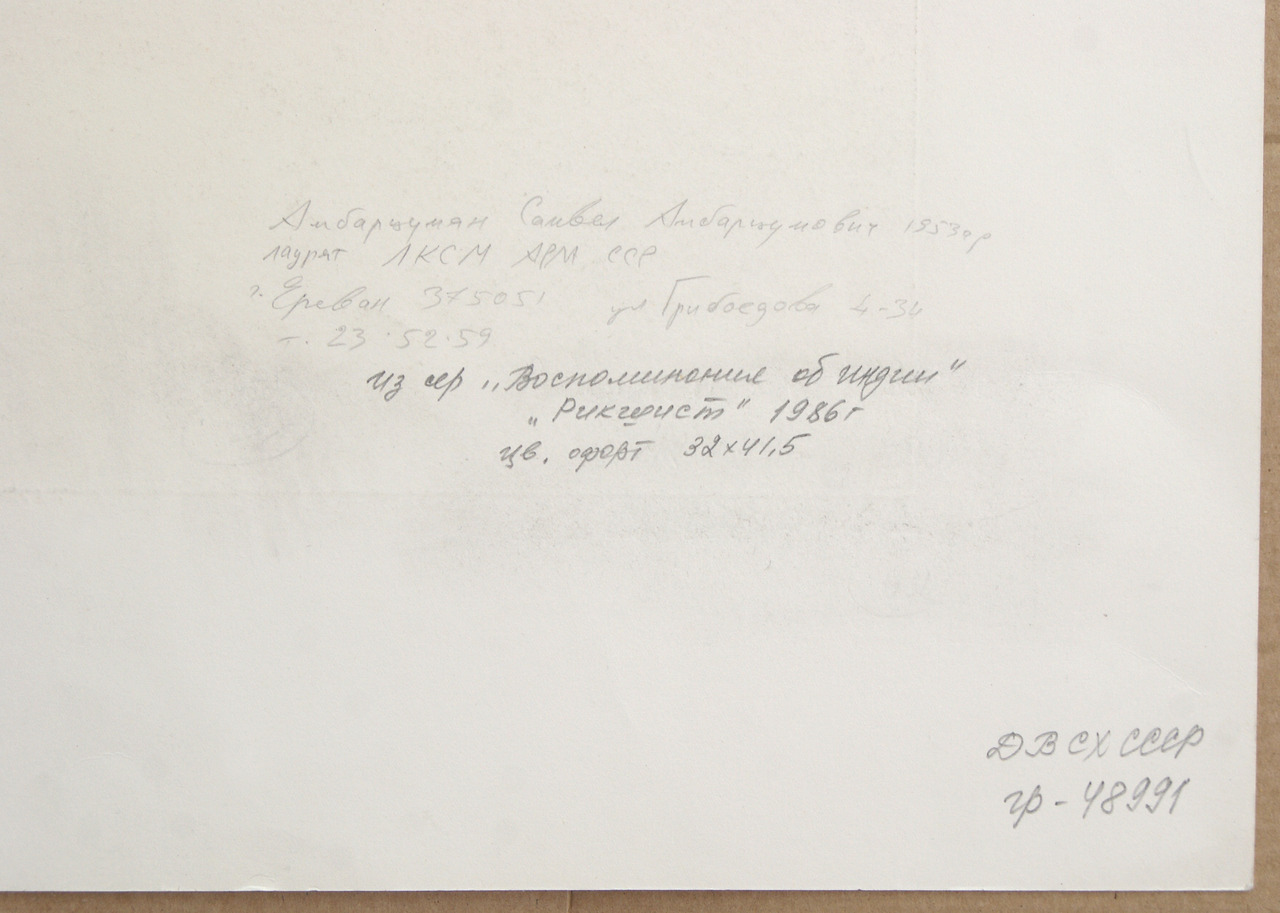 Амбарцумян Самвел Амбарцумович 1953г р
лаурят ЛКСМ АРМ ССР
г. Ереван 375051 ул Грибоедова 4-34
т. 23.52.59
из сер „Воспоминание об Индии"
„Рикшист" 1986г
цв. офорт 32x41,5
ДВ СХ СССР
гр-48991